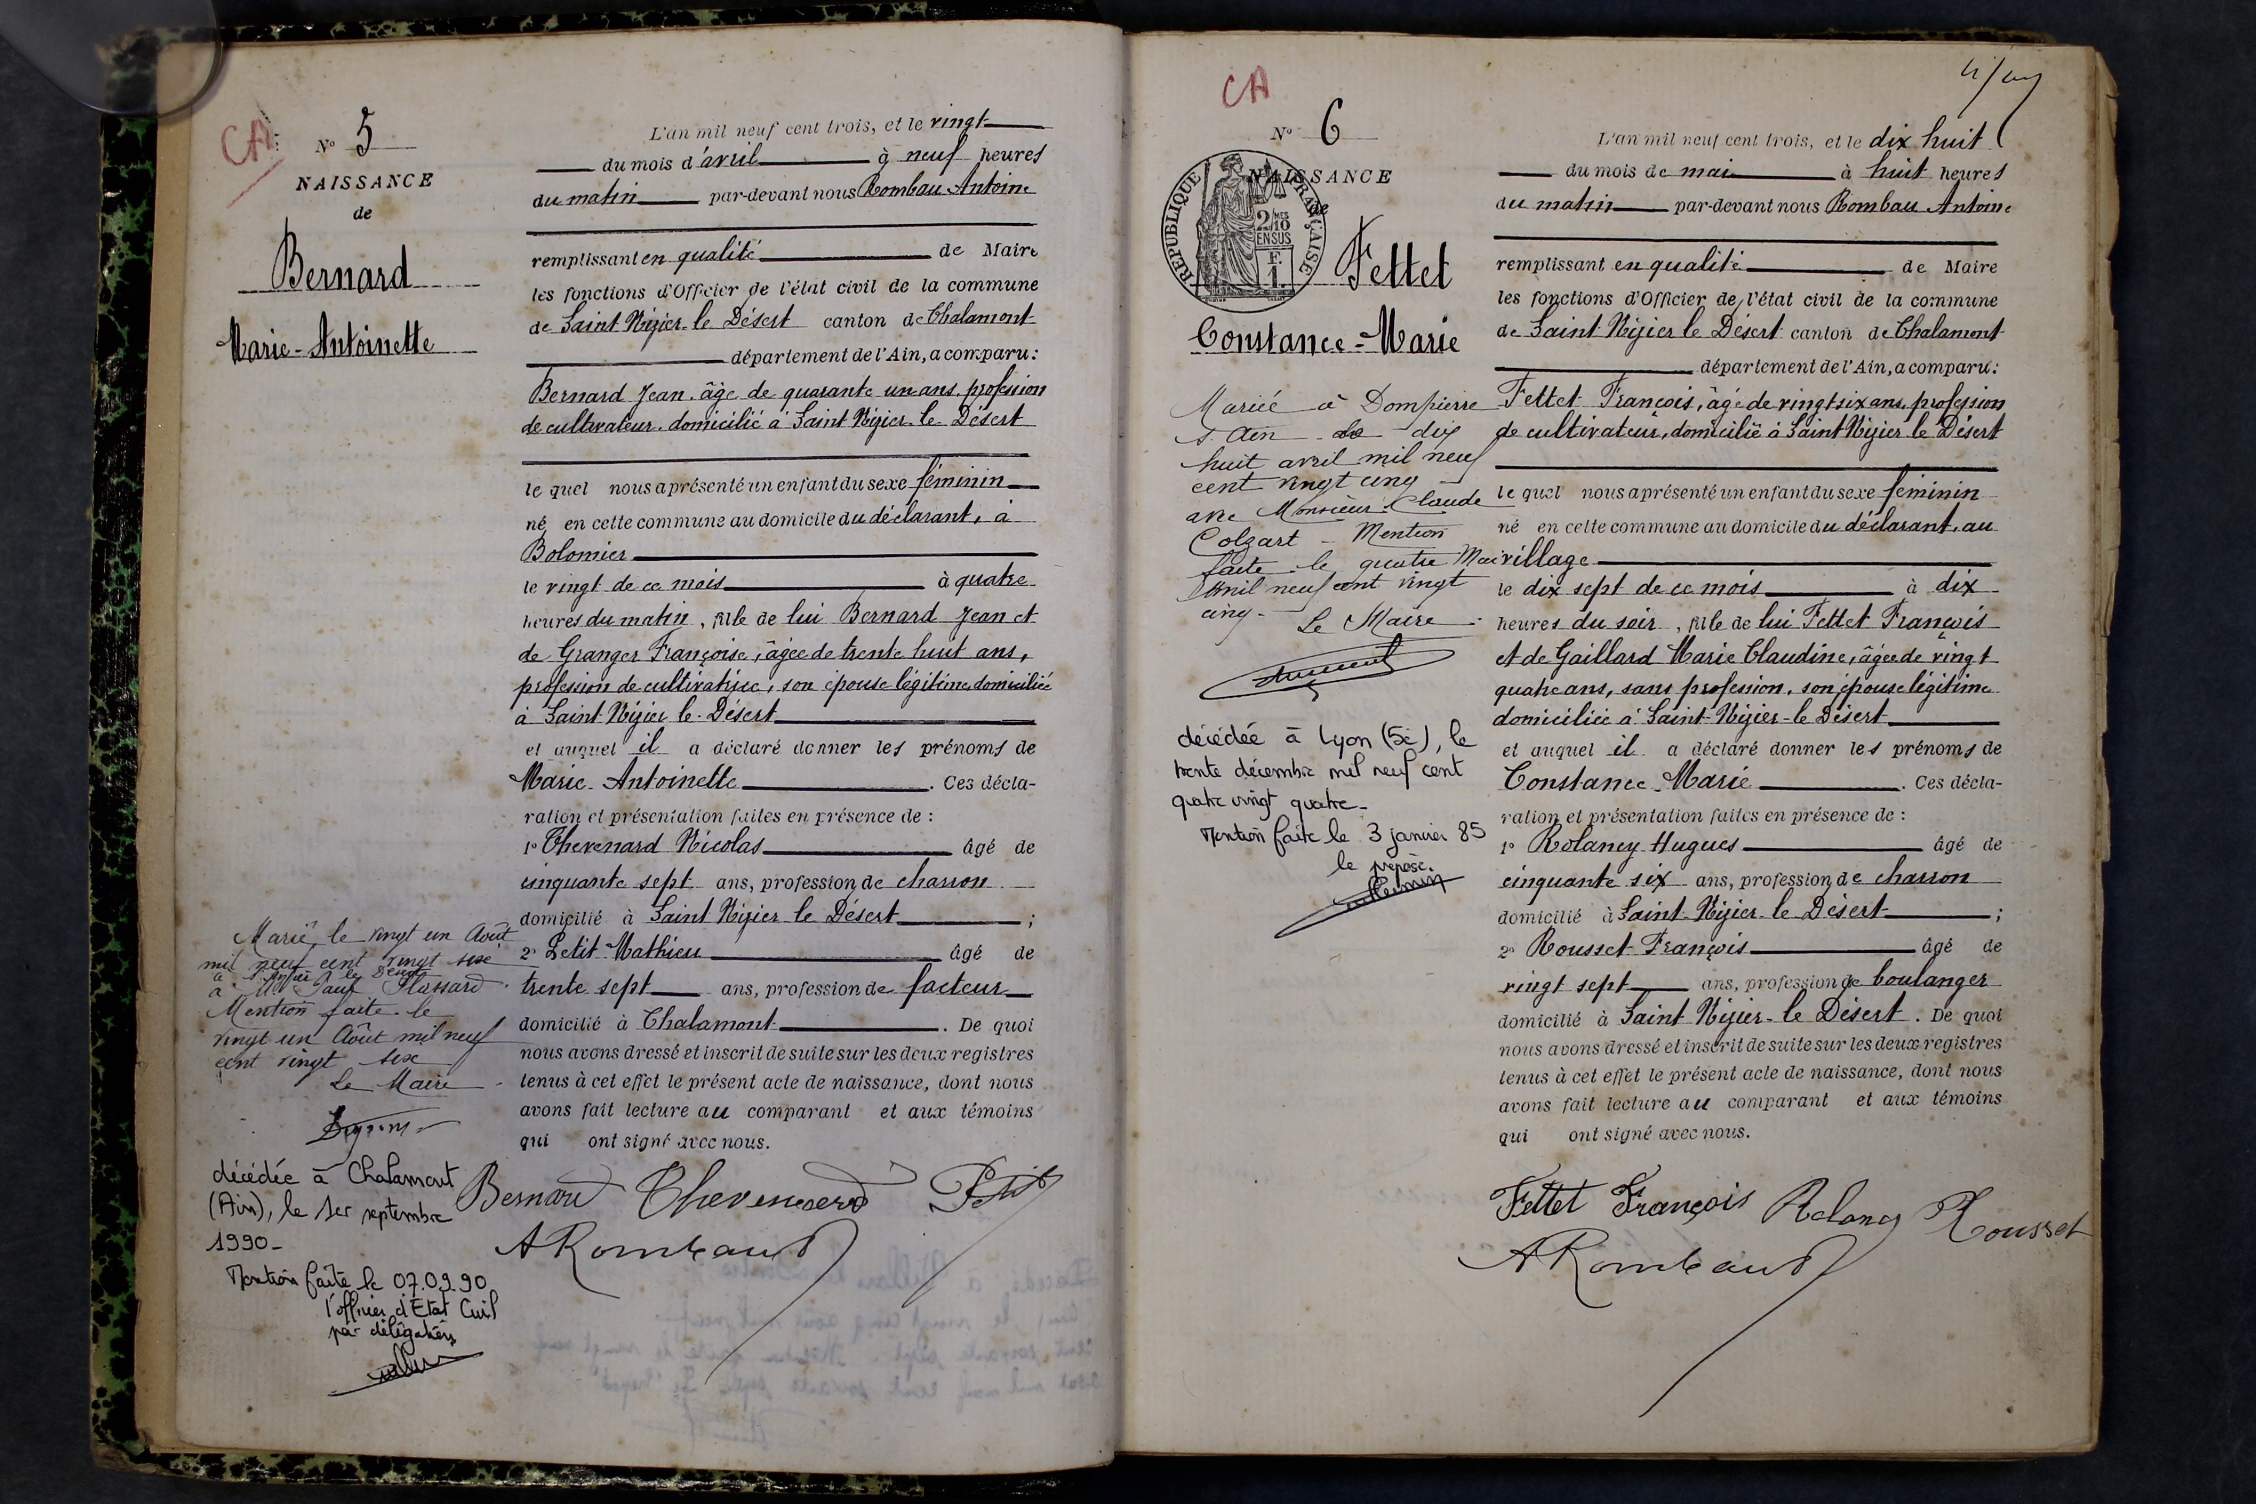 CA
N° 5
NAISSANCE
de
Bernard
Marie-Antoinette
L'an mil neuf cent trois, et le vingt
du mois d'avril à neuf heures
du matin par-devant nous Rombau Antoine
remplissant en qualité de Maire
les fonctions d'Officier de l'état civil de la commune
de Saint Nizier-le Désert canton de Chalamont
département de l'Ain, a comparu:
Bernard Jean, âgé de quarante un ans, profession
de cultivateur, domicilié à Saint Nizier-le-Désert
le quel nous a présenté un enfant du sexe féminin
né en cette commune au domicile du déclarant, à
Bolomier
le vingt de ce mois à quatre
heures du matin, fille de lui Bernard Jean et
de Granger Françoise, âgée de trente huit ans,
profession de cultivatrice, son épouse légitime domiciliée
à Saint-Nizier le-Désert
et auquel il a déclaré donner les prénoms de
Marie-Antoinette. Ces décla-
ration et présentation faites en présence de :
1° Thevenard Nicolas âgé de
cinquante sept ans, profession de charron
domicilié à Saint Nizier le Désert ;
2° Petit Mathieu âgé de
trente sept ans, profession de facteur
domicilié à Chalamont. De quoi
nous avons dressé et inscrit de suite sur les deux registres
tenus à cet effet le présent acte de naissance, dont nous
avons fait lecture au comparant et aux témoins
qui ont signé avec nous.
Bernard Thevenard Petit
ARombaud
Marié, le vingt un Août
mil neuf cent vingt six
à St André le
à M. Paul Plassard
Mention faite le
vingt un Août mil neuf
cent vingt six
Le Maire
décédée à Chalamont
(Ain), le 1er septembre
1990-
Mention faite le 07.09.90
l'officier d'Etat Civil
par délégation
CA
N° 6
NAISSANCE
de
REPUBLIQUE FRANÇAISE
2/10 EN SUS
F. 1.
Fettet
Constance-Marie
L'an mil neuf cent trois, et le dix huit
du mois de mai à huit heures
du matin par-devant nous Rombau Antoine
remplissant en qualité de Maire
les fonctions d'Officier de l'état civil de la commune
de Saint-Nizier le Désert canton de Chalamont
département de l'Ain, a comparu:
Fettet François, âgé de vingt six ans, profession
de cultivateur, domicilié à Saint Nizier le Désert
le quel nous a présenté un enfant du sexe féminin
né en cette commune au domicile du déclarant, au
village
le dix sept de ce mois à dix
heures du soir, fille de lui Fettet François
et de Gaillard Marie Claudine, âgée de vingt
quatre ans, sans profession, son épouse légitime
domiciliée à Saint-Nizier-le Désert
et auquel il a déclaré donner les prénoms de
Constance-Marie. Ces décla-
ration et présentation faites en présence de :
1° Rolancy Hugues âgé de
cinquante six ans, profession de charron
domicilié à Saint-Nizier-le Désert ;
2° Rousset François âgé de
vingt sept ans, profession de boulanger
domicilié à Saint Nizier-le Désert. De quoi
nous avons dressé et inscrit de suite sur les deux registres
tenus à cet effet le présent acte de naissance, dont nous
avons fait lecture au comparant et aux témoins
qui ont signé avec nous.
Fettet François Rolancy Rousset
ARombaud
Mariée à Dompierre
s. Ain le dix
huit avril mil neuf
cent vingt cinq
avec Monsieur Claude
Colzart - Mention
faite le quatre Mai
mil neuf cent vingt
cinq-
Le Maire
décédée à Lyon (5è), le
trente décembre mil neuf cent
quatre vingt quatre-
Mention faite le 3 janvier 85
le préposé.